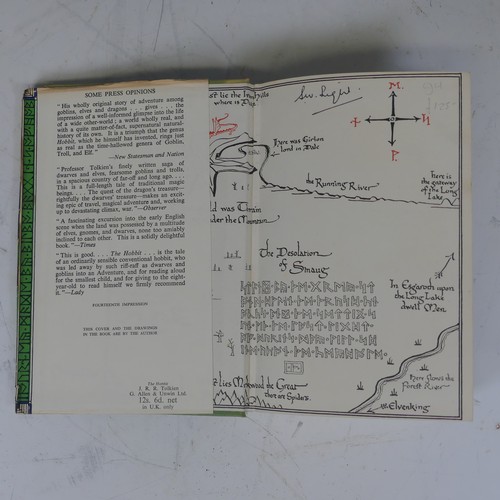 SOME PRESS OPINIONS
"His wholly original story of adventure among
goblins, elves and dragons . . . gives . . . the
impression of a well-informed glimpse into the life
of a wide other-world ; a world wholly real, and
with a quite matter-of-fact, supernatural natural-
history of its own. It is a triumph that the genus
Hobbit, which he himself has invented, rings just
as real as the time-hallowed genera of Goblin,
Troll, and Elf."
—New Statesman and Nation
"Professor Tolkien's finely written saga of
dwarves and elves, fearsome goblins and trolls,
in a spacious country of far-off and long ago. . . .
This is a full-length tale of traditional magic
beings. . . . The quest of the dragon's treasure—
rightfully the dwarves' treasure—makes an excit-
ing epic of travel, magical adventure, and working
up to devastating climax, war."—Observer
"A fascinating excursion into the early English
scene when the land was possessed by a multitude
of elves, gnomes, and dwarves, none too amiably
inclined to each other. This is a solidly delightful
book."—Times
"This is good. . . . The Hobbit . . . is the tale
of an ordinarily sensible conventional hobbit, who
was led away by such riff-raff as dwarves and
goblins into an Adventure, and for reading aloud
for the smallest child, and for giving to the eight-
year-old to read himself we firmly recommend
it."—Lady
FOURTEENTH IMPRESSION
THIS COVER AND THE DRAWINGS
IN THE BOOK ARE BY THE AUTHOR
The Hobbit
J. R. R. Tolkien
G. Allen & Unwin Ltd.
12s. 6d. net
in U.K. only
st lie the Iron Hills
where is Dain
Here was Girion
Lord in Dale
the Running River
here is
the gateway
of the Long
Lake
was Thrain
under the Mountain
The Desolation
of Smaug
In Esgaroth upon
the Long Lake
dwell Men
lies Mirkwood the Great
there are Spiders.
Here flows the
Forest River
Elvenking